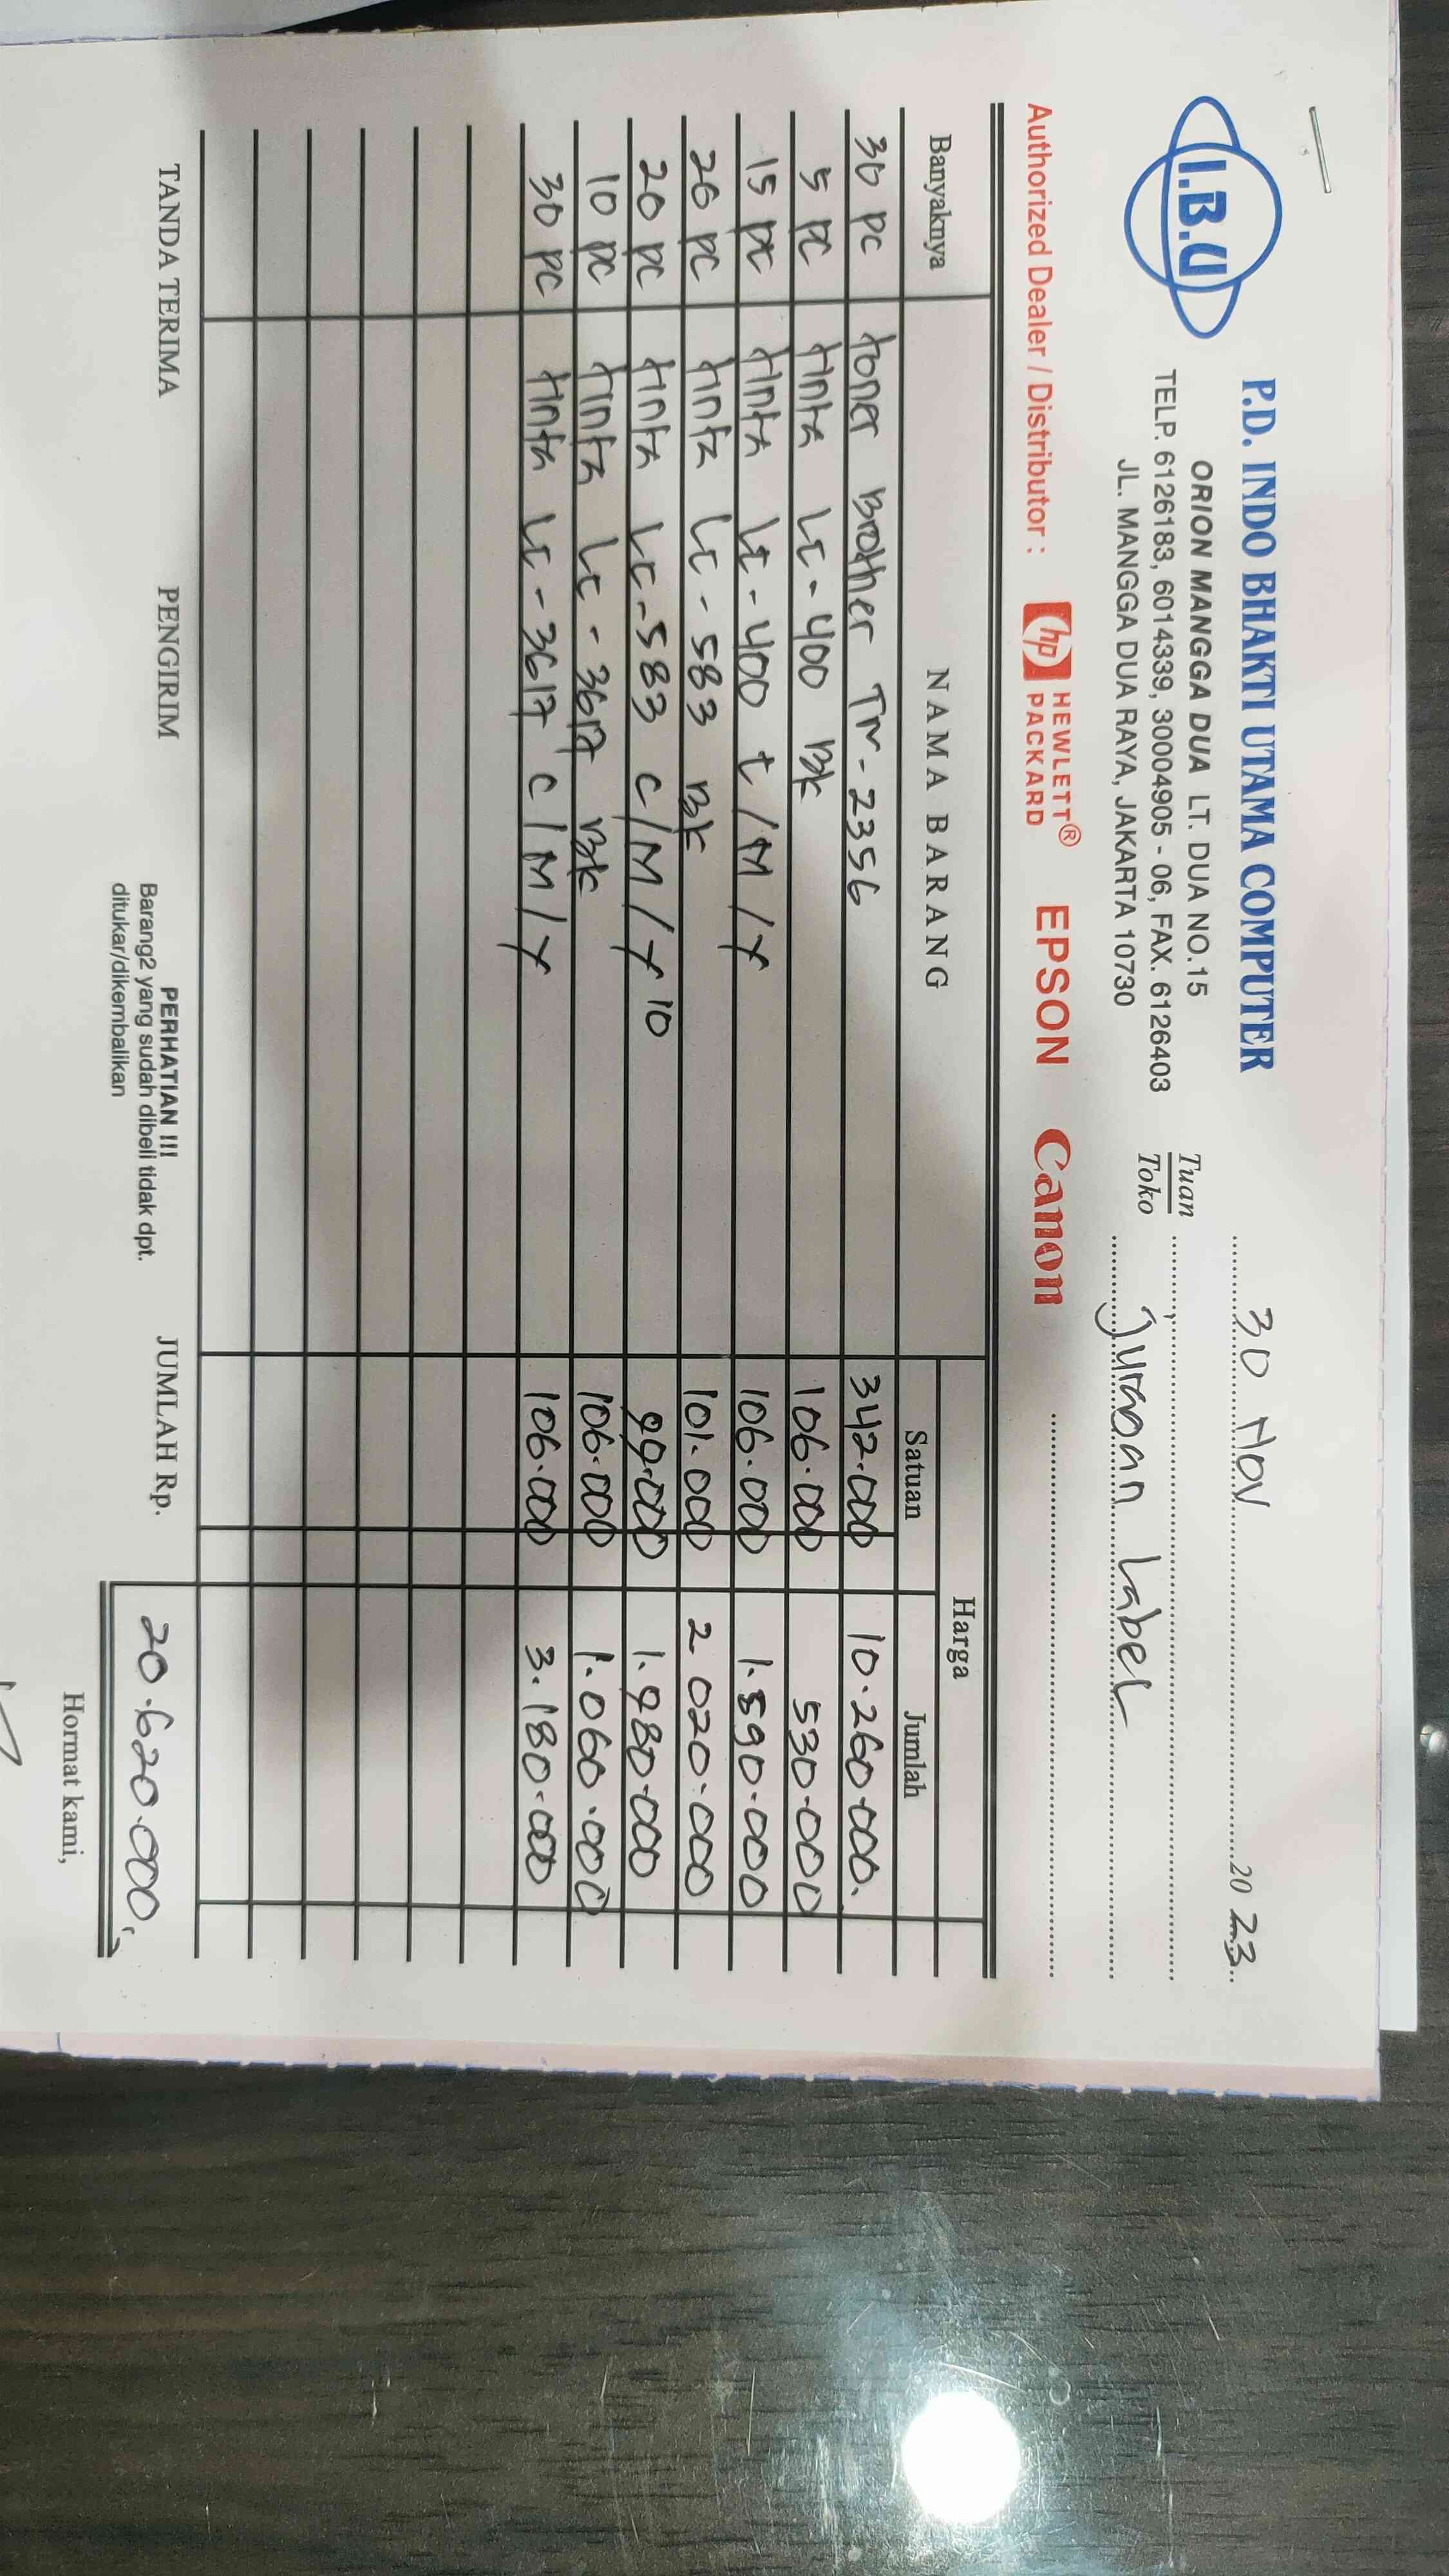 I.B.U
P.D. INDO BHAKTI UTAMA COMPUTER
ORION MANGGA DUA LT. DUA NO.15
TELP. 6126183, 6014339, 30004905 - 06, FAX. 6126403
JL. MANGGA DUA RAYA, JAKARTA 10730
30 Nov 20 23
Tuan
Toko Juragan Label
Authorized Dealer / Distributor : hp HEWLETT® PACKARD EPSON Canon
Banyaknya NAMA BARANG Harga
Satuan Jumlah
30 pc toner Brother TN-2356 342.000 10.260.000.
5 pc tinta LC-400 BK 106.000 530.000
15 pc tinta LC-400 C/M/Y 106.000 1.590.000
20 pc tinta LC-583 BK 101.000 2.020.000
20 pc tinta LC-583 C/M/Y 10 99.000 1.980.000
10 pc tinta LC-3617 BK 106.000 1.060.000
30 pc tinta LC-3617 C/M/Y 106.000 3.180.000
TANDA TERIMA PENGIRIM PERHATIAN !!! JUMLAH Rp. 20.620.000,
Barang2 yang sudah dibeli tidak dpt.
ditukar/dikembalikan
Hormat kami,